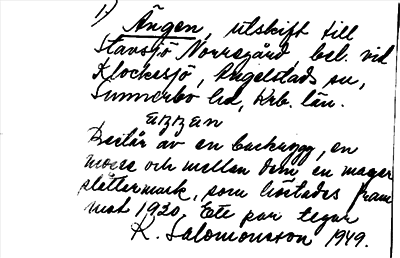 1)
Ängen, utskift till
Stavsjö Norregård, bel. vid
Klockesjö, Angelstads sn,
Sunnerbo hd, Krb. län.
äŋŋen
Består av en backrygg, en
mosse och mellan dem en mager
slåttermark, som höstades fram
mot 1920. Ett par tegar
K. Salomonsson 1949.